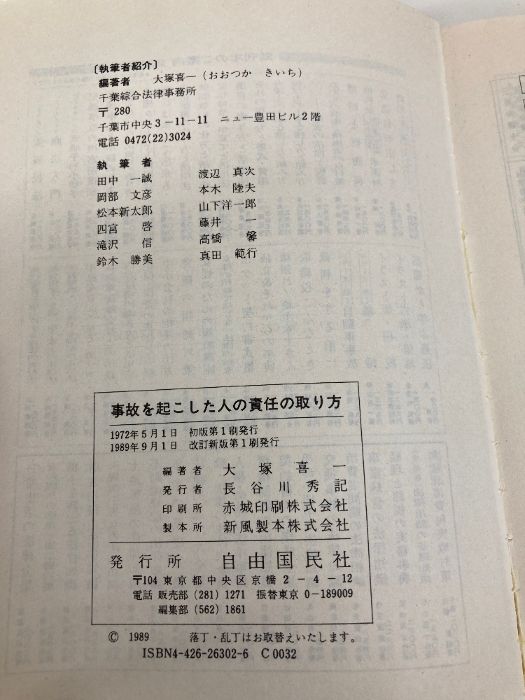 〔執筆者紹介〕
編著者　大塚喜一（おおつか　きいち）
千葉綜合法律事務所
〒280
千葉市中央3－11－11　ニュー豊田ビル2階
電話 0472(22)3024
執筆者
田中　一誠　渡辺　真次
岡部　文彦　本木　陸夫
松本新太郎　山下洋一郎
四宮　啓　藤井　一
滝沢　信　高橋　馨
鈴木　勝美　真田　範行
事故を起こした人の責任の取り方
1972年5月1日　初版第1刷発行
1989年9月1日　改訂新版第1刷発行
編著者　大塚喜一
発行者　長谷川秀記
印刷所　赤城印刷株式会社
製本所　新風製本株式会社
発行所　自由国民社
〒104 東京都中央区京橋2－4－12
電話 販売部 (281) 1271　振替東京 0－189009
編集部 (562) 1861
© 1989　落丁・乱丁はお取替えいたします。
ISBN4-426-26302-6　C0032